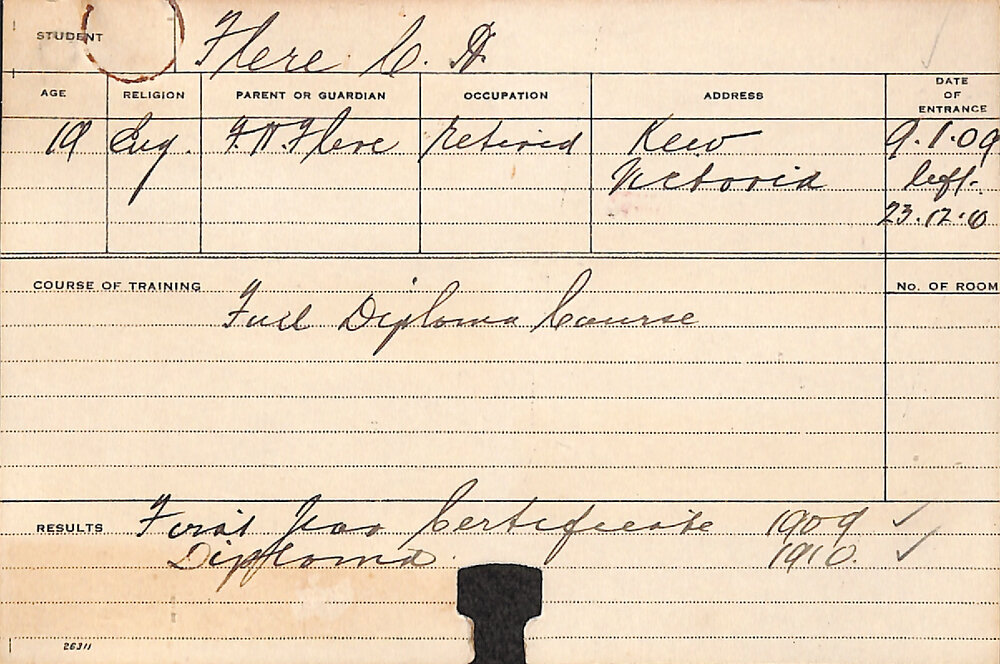 STUDENT Flere C. H.
AGE RELIGION PARENT OR GUARDIAN OCCUPATION ADDRESS DATE OF ENTRANCE
19 Eng. F. H. Flere retired Kew 9.1.09
Victoria left.
23.12.10
COURSE OF TRAINING No. OF ROOM
Full Diploma Course
RESULTS First Year Certificate 1909 ✓
Diploma. 1910. ✓
26311